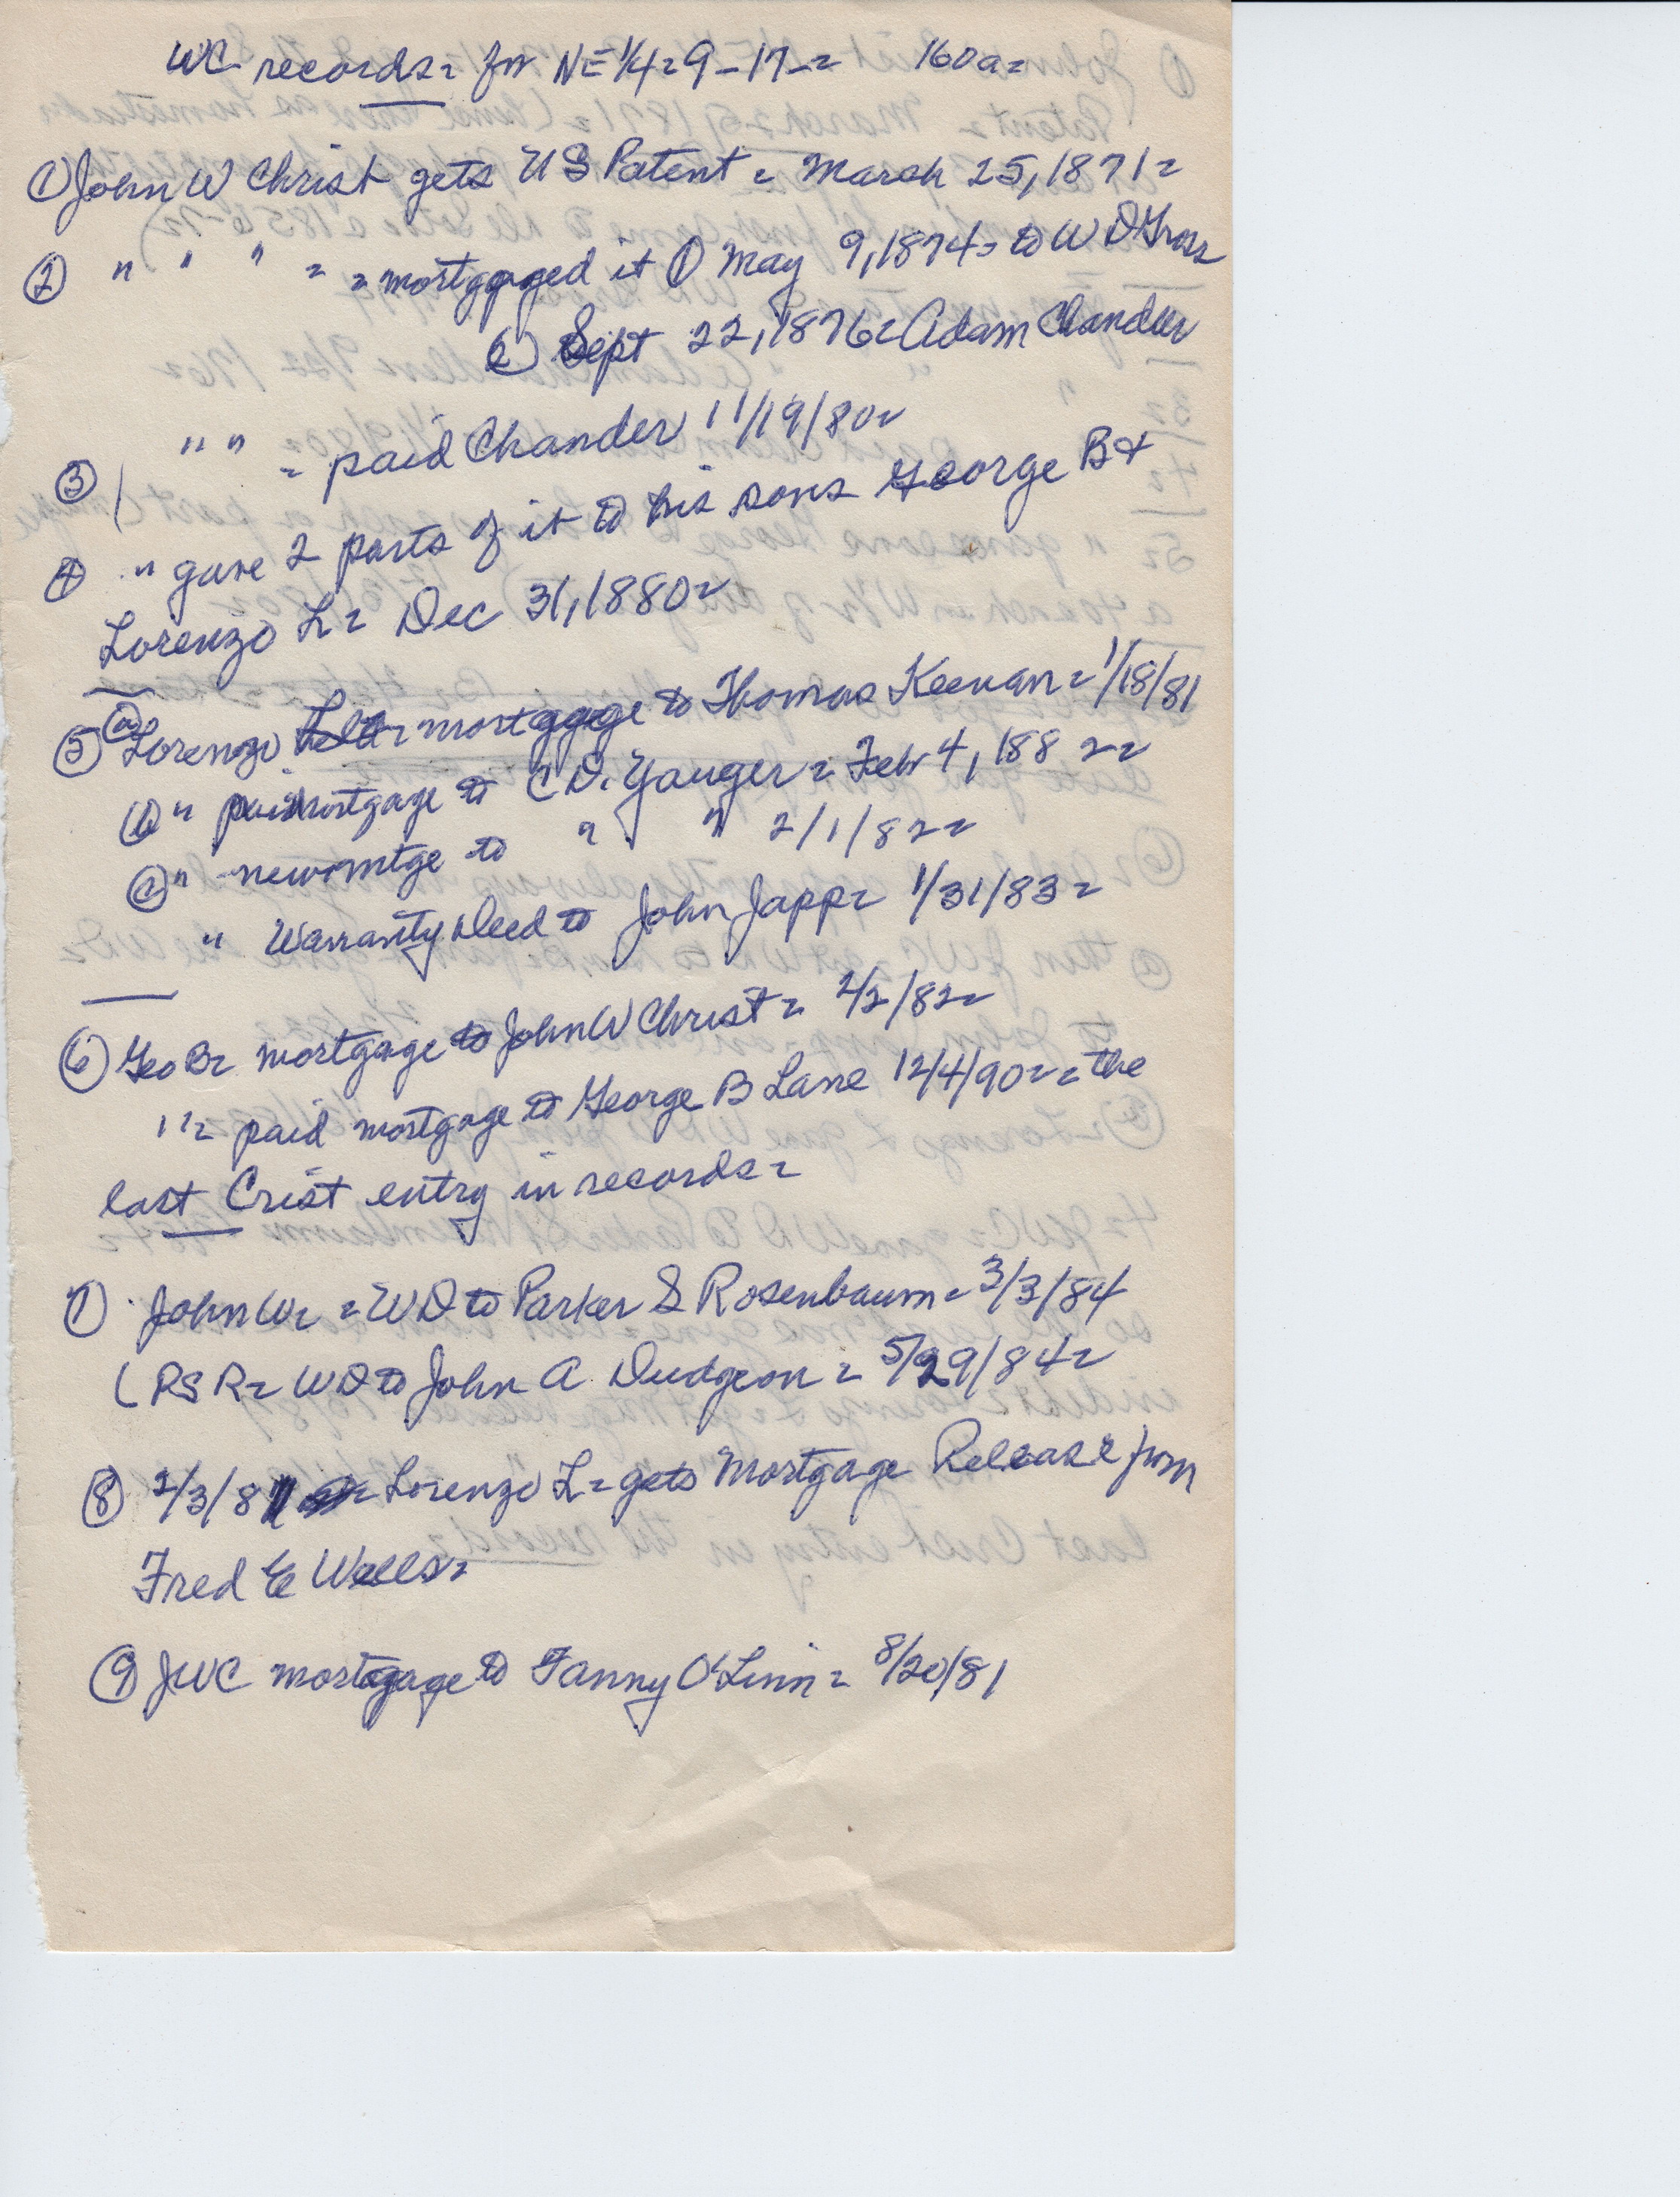 WC records = for NE 1/4 = 9-17-= 160a=
① John W Christ gets US Patent = March 25, 1871=
② " " " = = mortgaged it ① May 9, 1874 = to W D Gross
② Sept 22, 1876 = Adam Chandler
③ " " = paid Chander 11/19/80=
④ " gave 2 parts of it to his sons George B +
Lorenzo L = Dec 31, 1880=
⑤ ⓐ Lorenzo = mortgage to Thomas Keenan = 1/18/81
ⓑ " paid mortgage to C D. Yauger = Feb 4, 1882=
ⓒ " new mtge to " " 2/1/82=
" Warranty Deed to John Japp = 1/31/83=
⑥ Geo B = mortgage to John W Christ = 2/2/82=
" = paid mortgage to George B Lane 12/4/90 = = the
last Crist entry in records =
⑦ John W = = WD to Parker S Rosenbaum = 3/3/84
( P S R = WD to John A Dudgeon = 5/29/84=
⑧ 2/3/81 = Lorenzo L = gets Mortgage Release from
Fred E Wells =
⑨ JWC mortgage to Fanny O'Linn = 8/20/81